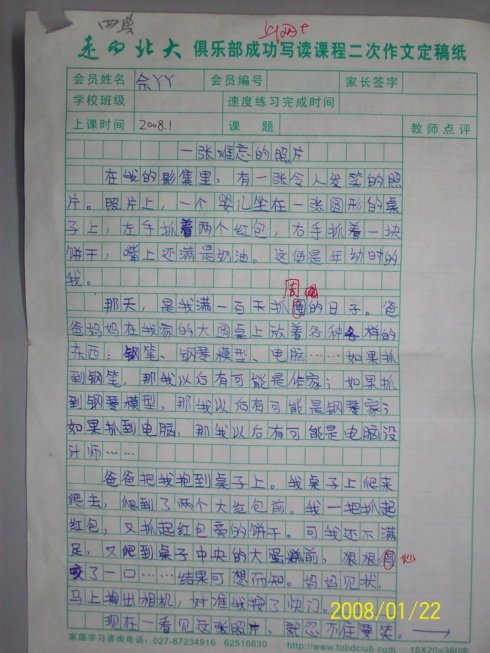 走向北大 俱乐部成功写读课程二次作文定稿纸
会员姓名 佘YY 会员编号 家长签字
学校班级 速度练习完成时间
上课时间 2008.1 课 题 教师点评
一张难忘的照片
在我的影集里,有一张令人发笑的照
片。照片上,一个婴儿坐在一张圆形的桌
子上,左手抓着两个红包,右手抓着一块
饼干,嘴上还满是奶油。这便是年幼时的
我。
周
那天,是我满一百天抓周的日子。爸
爸妈妈在我家的大圆桌上放着各种各样的
东西:钢笔、钢琴模型、电脑……如果抓
到钢笔,那我以后有可能是作家;如果抓
到钢琴模型,那我以后有可能是钢琴家;
如果抓到电脑,那我以后有可能是电脑设
计师……
爸爸把我抱到桌子上。我桌子上爬来
爬去,爬到了两个大红包前。我一把抓起
红包,又抓起红包旁的饼干。可我还不满
足,又爬到桌子中央的大蛋糕前,狠狠得 地
咬了一口……结果可想而知。妈妈见状,
马上掏出相机,对准我按了快门。
现在一看见这张照片,就忍不住要笑。
家庭学习咨询电话:027-87234916 62516630 http://www.tobdclub.com 18X20=360字
2008/01/22